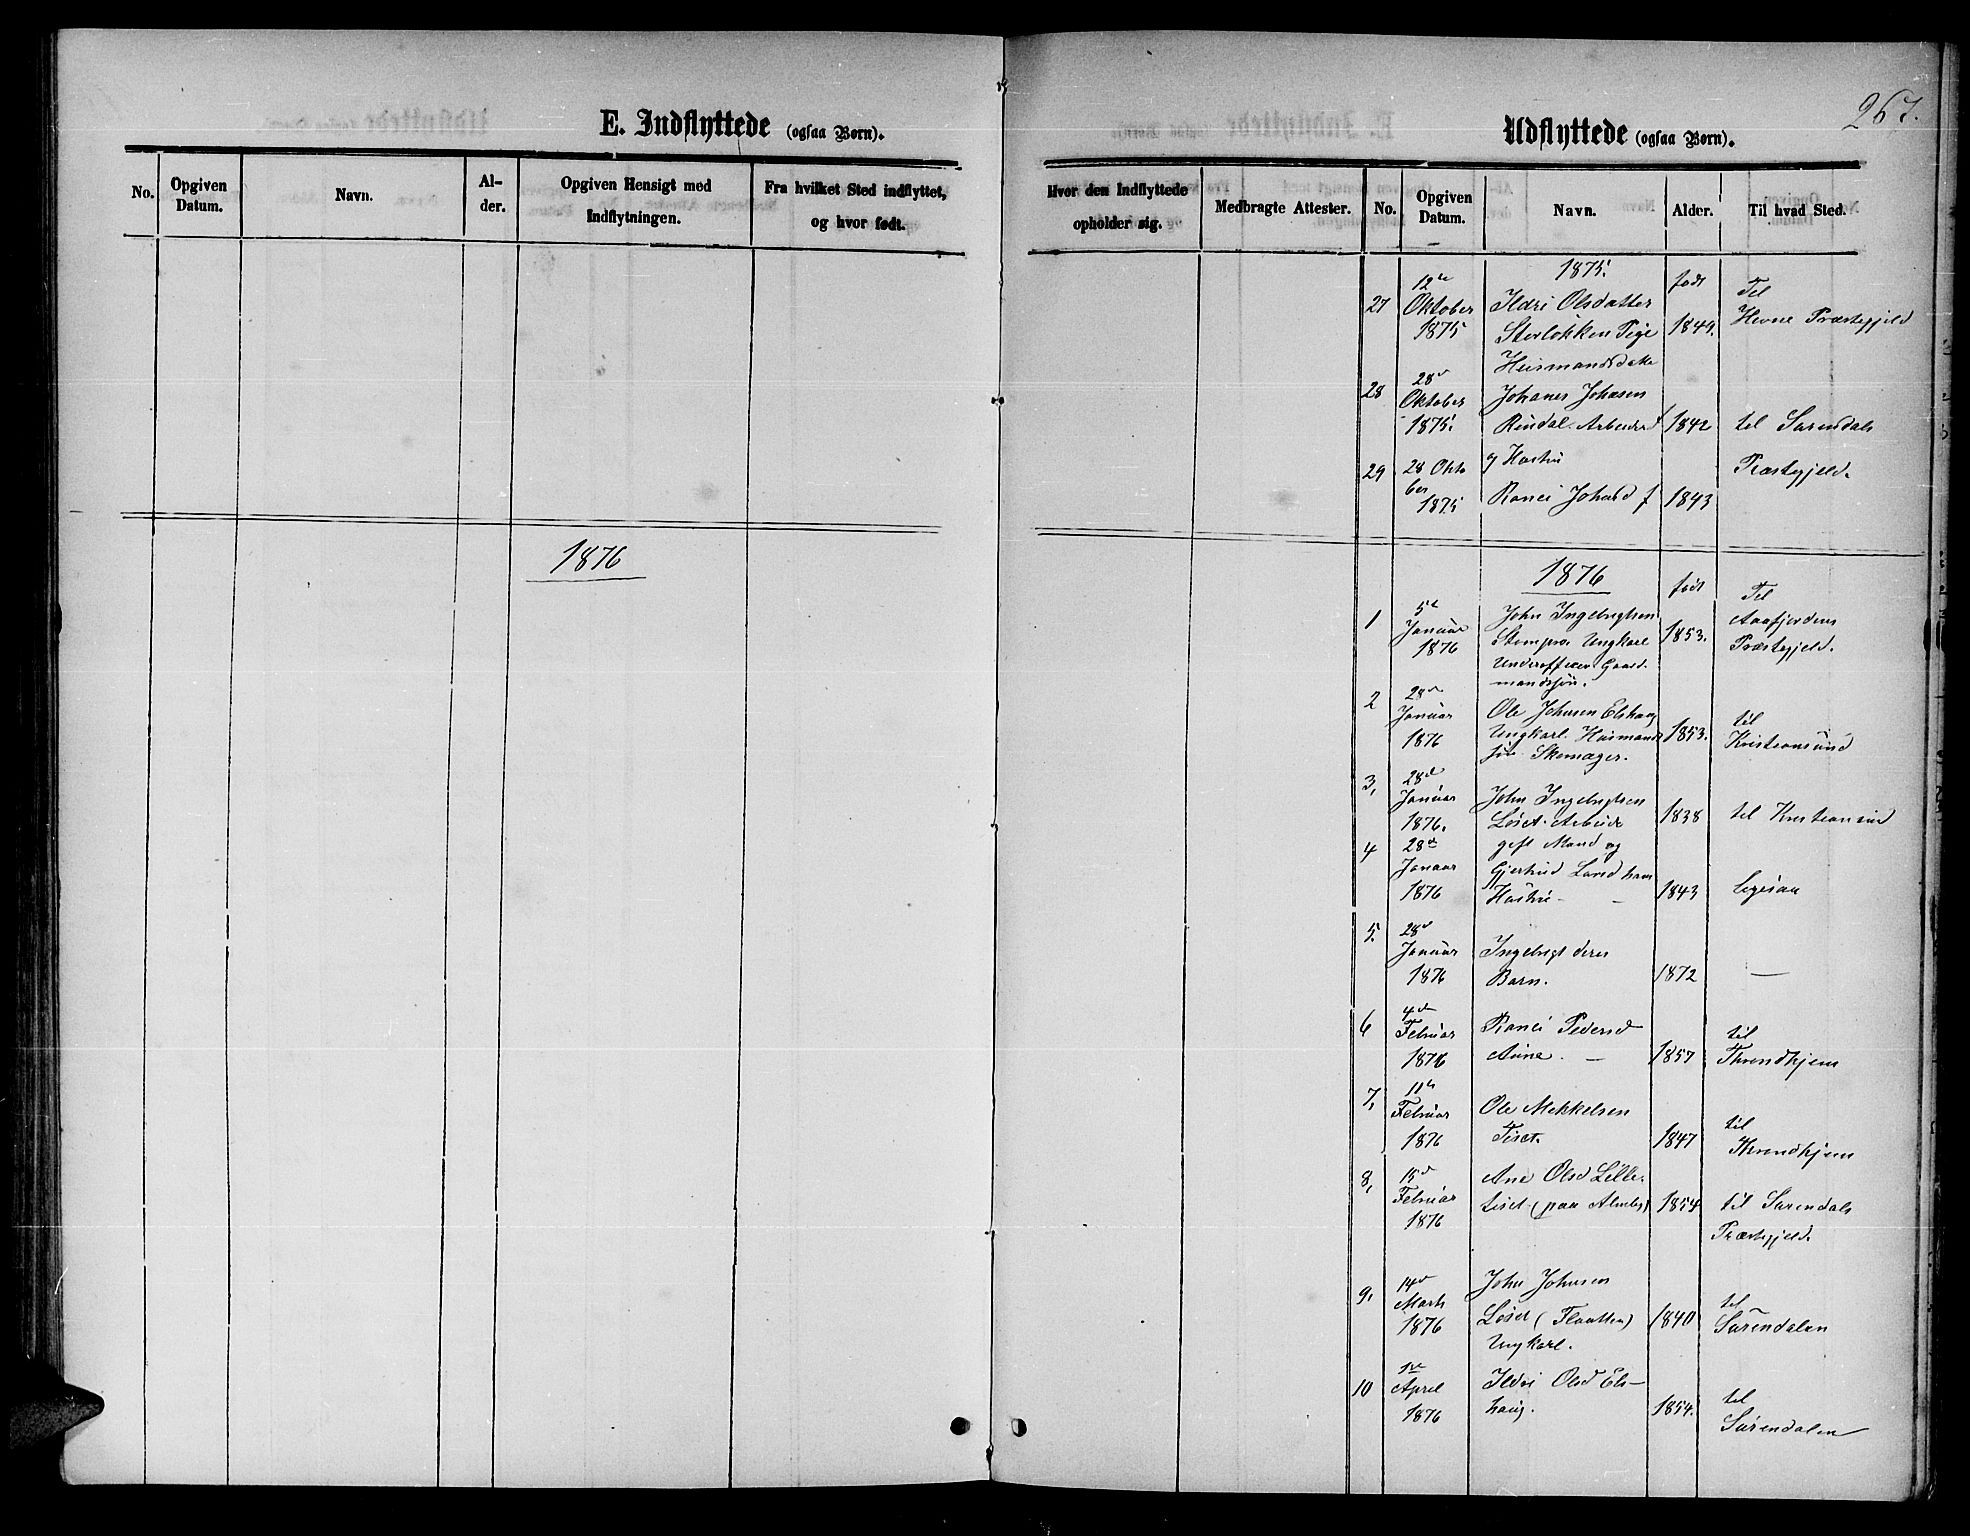 E. Indflyttede (ogsaa Børn).
No.
Opgiven Datum.
Navn.
Al-
der.
Opgiven Hensigt med
Indflytningen.
Fra hvilket Sted indflyttet,
og hvor født.
1876
267.
Udflyttede (ogsaa Børn).
Hvor den Indflyttede
opholder sig.
Medbragte Attester.
No.
Opgiven Datum.
Navn.
Alder.
Til hvad Sted.
1875.
27 12te Oktober 1875
Ildri Olsdatter
Storløkken Pige
Huusmandsdatte
født 1849.
Til
Hevne Præstegjeld
28 28de Oktober 1875.
Johanes Johnsen
Rindal. Arbeider f 1842
til Surendals
29 28 Oktober 1875
og Hustru
Ranei Johnsd f 1843
Præstegjeld.
1876
født
1 5te Januar 1876
John Ingebrigtsen
Ungkarl
Underofficer Gaard-
mandssøn.
1853.
Til
Aafjordens
Præstegjeld.
2 28de Januar 1876
Ole Johnsen Elshaug
Ungkarl. Huusmands
søn. Skomager.
1853.
til
Kristiansund
3, 28de Januar 1876.
John Ingebrigtsen
Løset. Arbeide
1838
til Kristiansund
4 28de Januar 1876
gift Mand og
Gjertrud
Hustru -
1843
Ligesaa
5 28de Januar 1876
Ingebrigt deres
Barn.
1872
—
6 4de Februar 1876
Ranei Pedersd
Aune. —
1857
til
Throndhjem
7, 11te Februar 1876
Ole Mekkelsen
Tiset.
1847
til
Throndhjem
8, 15de Februar 1876
Ane Olsd Lille-
tiset (paa
1854
til Surendals
Præstegjeld.
9, 14de Marts 1876
John Johnsen
Løset (Flaatten)
Ungkarl.
1840
til
Surendalen
10 1ste April 1876
Ildri Olsd Els-
haug.
1854.
til
Surendalen